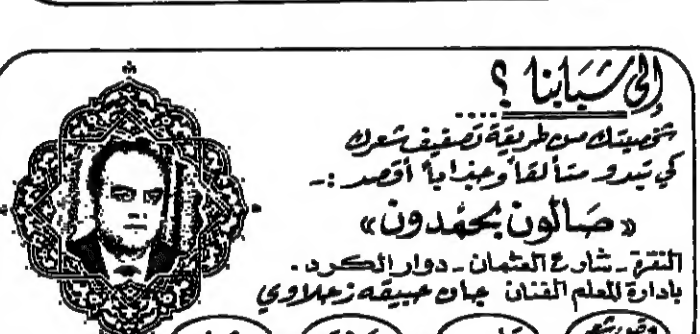 إلى شبابنا ؟
شخصيتك من طريقة تصفيف شعرك
كي تبدو متألقاً وجذاباً أقصد :-
«صالون بحمدون»
النقرة - شارع العثمان - دوار الكرد .
بادارة المعلم الفنان جان حبيقه زحلاوي